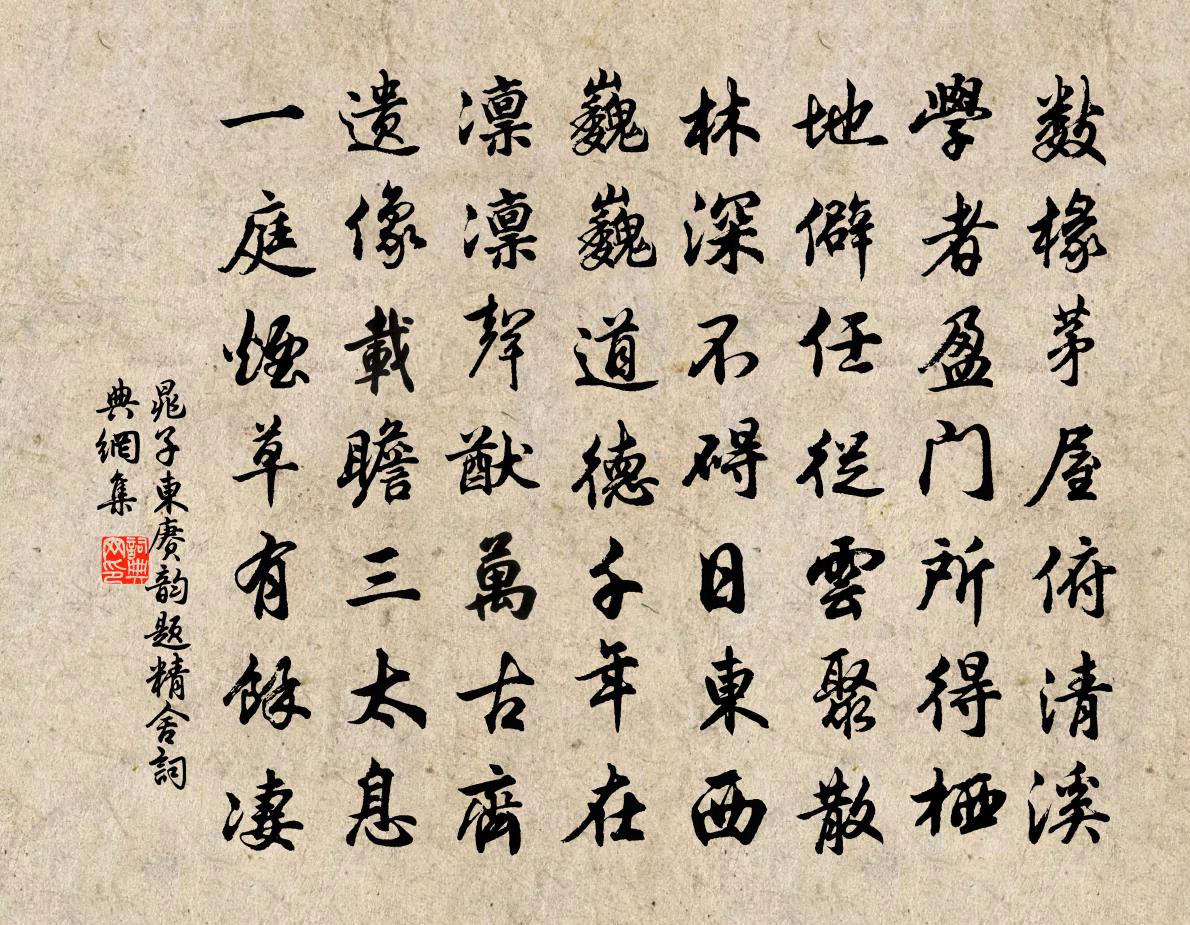 數椽茅屋俯清溪
學者盈門所得栖
地僻任從雲聚散
林深不碍日東西
巍巍道德千年在
凛凛聲猷萬古齊
遗像載瞻三太息
一庭煙草有餘凄
晁子東赓韵题精舍詞
典網集
詞典
网印